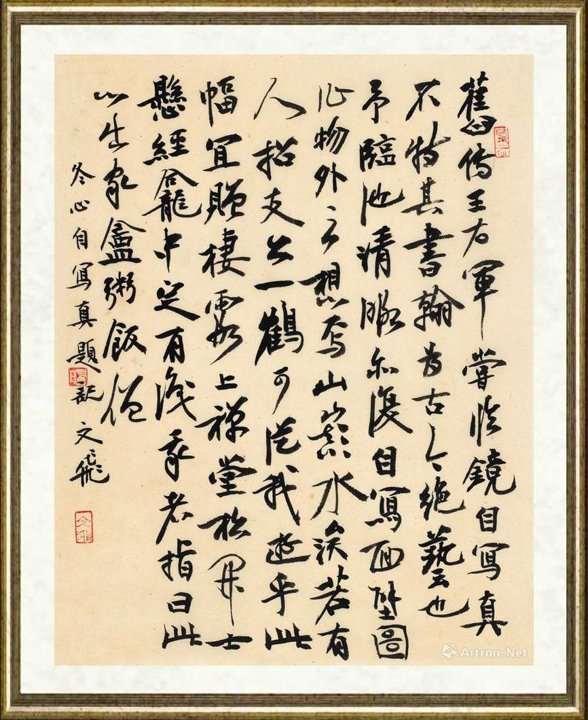 舊傳王右軍嘗臨鏡自寫真
不特其書翰為古今絕藝也
予臨池清暇亦復自寫面壁圖
作物外之想焉山巔水涘若有
人招支公一鶴可從我遊乎此
幅宜贈棲霞上禪堂松開士
懸經龕中定有識予者指曰此
心出家盦粥飯僧
冬心自寫真題記 文飛
Artron.Net